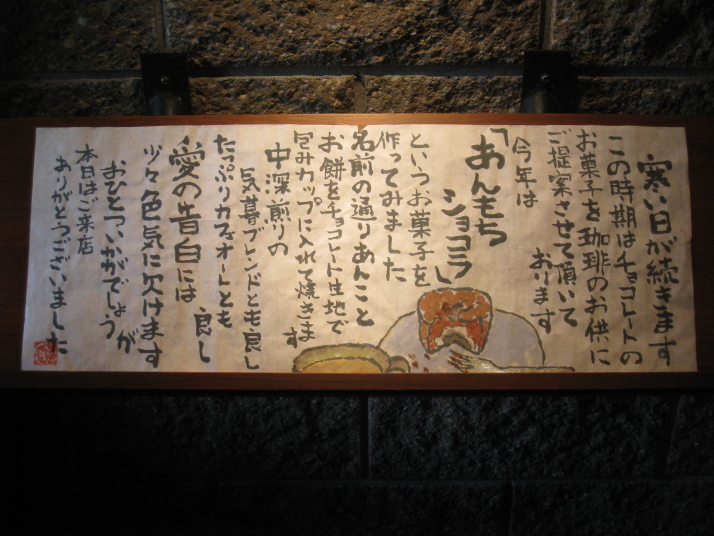 寒い日が続きます
この時期はチョコレートの
お菓子を珈琲のお供に
ご提案させて頂いて
おります
今年は
「あんもち
ショコラ」
というお菓子を
作ってみました
名前の通りあんこと
お餅をチョコレート生地で
包みカップに入れて焼きます
中深煎りの
気暮ブレンドとも良し
たっぷりカフェオーレとも
良し
愛の告白には
少々色気に欠けますが
おひとついかがでしょう
本日はご来店
ありがとうございました